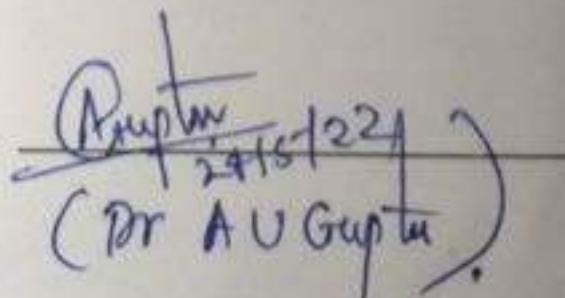 AUGupta
24/5/22
(Dr A U Gupta).